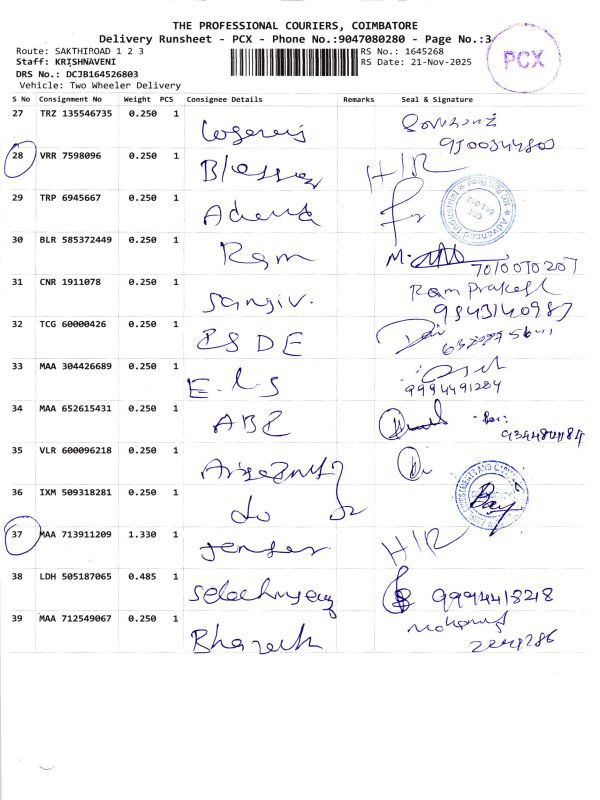 THE PROFESSIONAL COURIERS, COIMBATORE
Delivery Runsheet - PCX - Phone No.:9047080280 - Page No.:3
Route: SAKTHIROAD 1 2 3
RS No.: 1645268
Staff: KRISHNAVENI
RS Date: 21-Nov-2025
DRS No.: DCJB164526803
Vehicle: Two Wheeler Delivery
PCX
S No Consignment No Weight PCS Consignee Details Remarks Seal & Signature
27 TRZ 135546735 0.250 1
28 VRR 7598096 0.250 1 H/R
29 TRP 6945667 0.250 1
30 BLR 585372449 0.250 1 Ram
31 CNR 1911078 0.250 1 Sangiv. Ram Prakesh
9843140987
32 TCG 60000426 0.250 1 PSDE
33 MAA 304426689 0.250 1 E.L.S
9994491284
34 MAA 652615431 0.250 1 ABZ
35 VLR 600096218 0.250 1
36 IXM 509318281 0.250 1 do
37 MAA 713911209 1.330 1 H/R
38 LDH 505187065 0.485 1 9994418218
39 MAA 712549067 0.250 1 Bharath